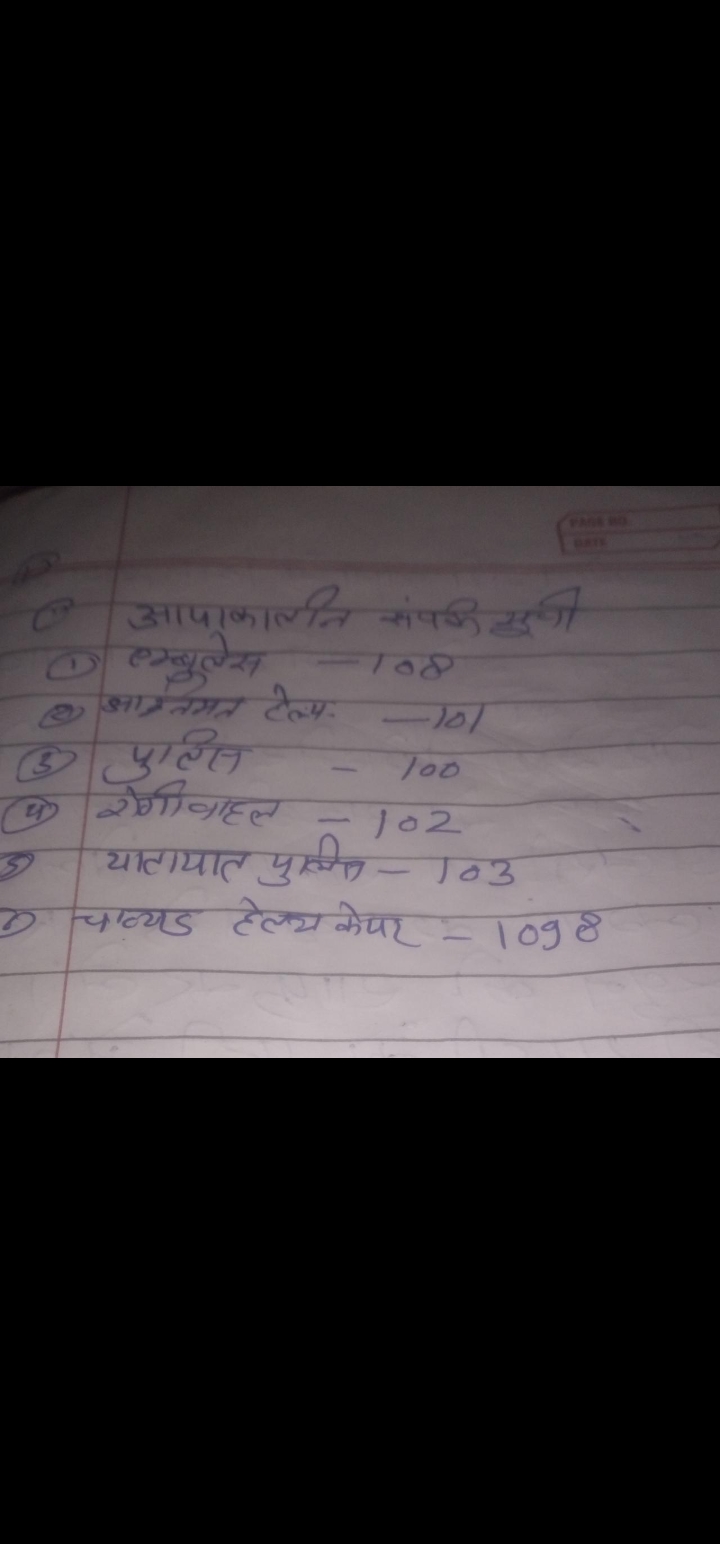 PAGE NO.
DATE
आपाकालीन संपर्क सूची
① एम्बुलेस - 108
② हेल्प - 101
③ पुलिस - 100
④ रोगीवाहन - 102
5 यातायात पुलिस - 103
चाल्यड हेल्थ केयर - 1098